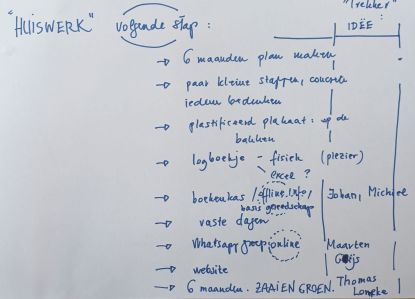 "HUISWERK" volgende stap : "Trekker" :
IDËE
→ 6 maanden plan maken
→ paar kleine stappen, concrete
iedeen bedenken
→ plastificeerd plakaat : op de
bakken
→ logboekje - fisiek (plezier)
excel ?
→ boekenkas /offline info, Johan, Michiel
basis gereedschap
→ vaste dagen
→ Whatsapp groep, online Maarten
Gijs
→ website
→ 6 maanden. ZAAIEN GROEN. Thomas
Loneke